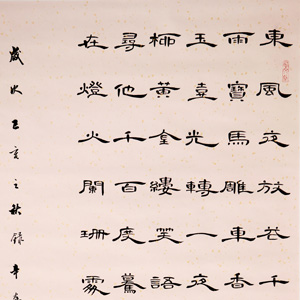 東風夜放花千
雨寶馬雕車香
玉壺光轉一夜
柳黃金縷笑語
尋他千百度驀
在燈火闌珊處
歲次己亥之秋錄辛